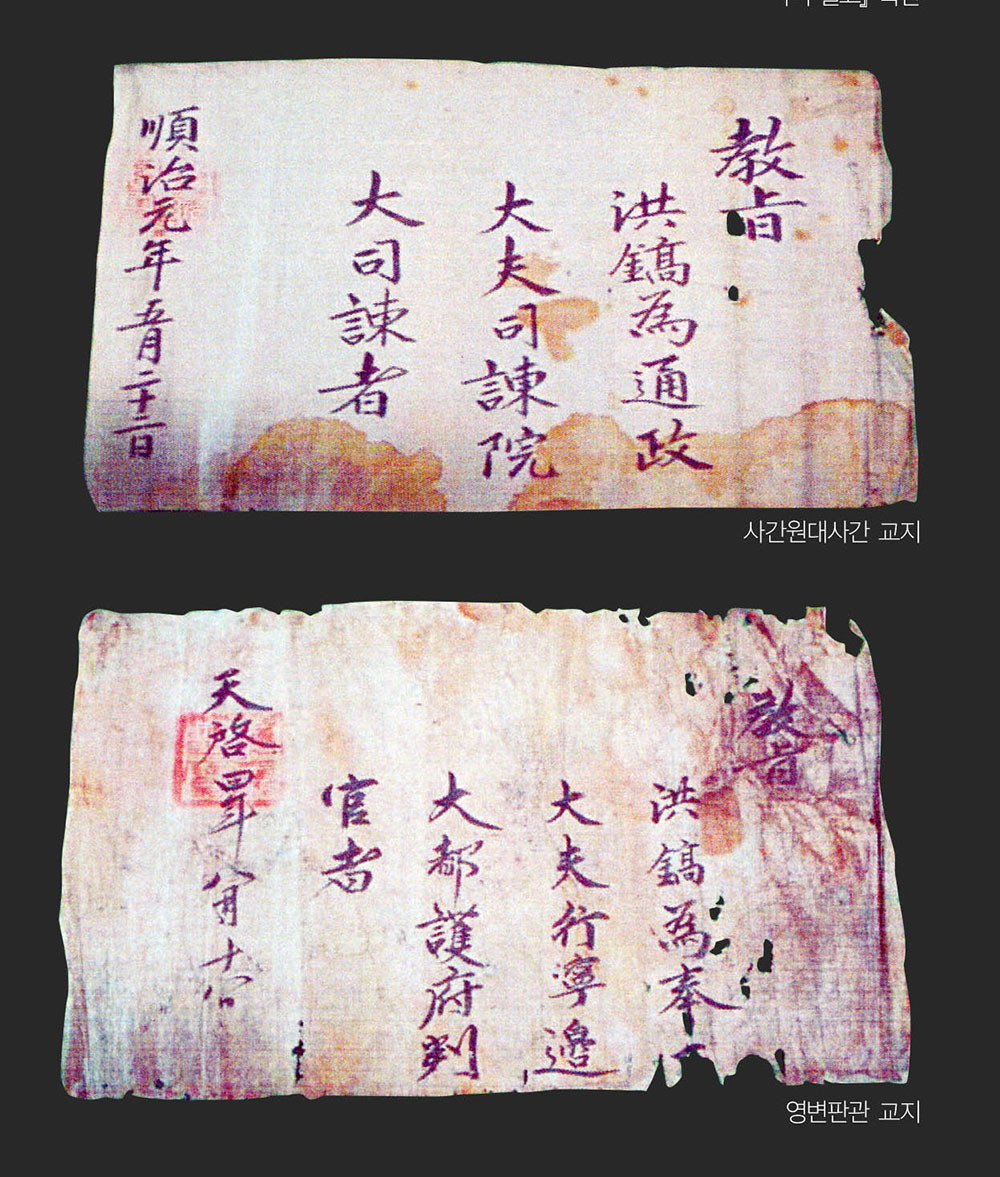 教旨
洪鎬為通政
大夫司諫院
大司諫者
順治元年五月二十二日
사간원대사간 교지
教旨
洪鎬為奉
大夫行寧邊
大都護府判
官者
天啓四年八月十
영변판관 교지